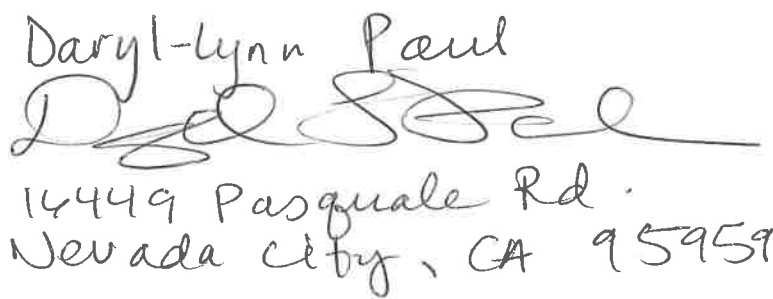 Daryl-Lynn Paul
16449 Pasquale Rd.
Nevada City, CA 95959